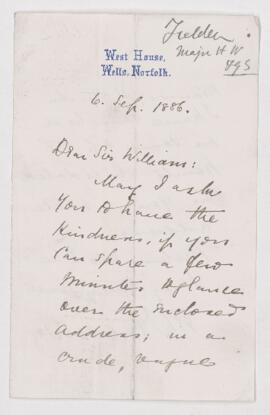 Feilden
Major H W
495
West House,
Wells, Norfolk.
6. Sep. 1886.
Dear Sir William:
May I ask
you to have the
kindness, if you
can spare a few
minutes to glance
over the enclosed
address; in a
crude, vague